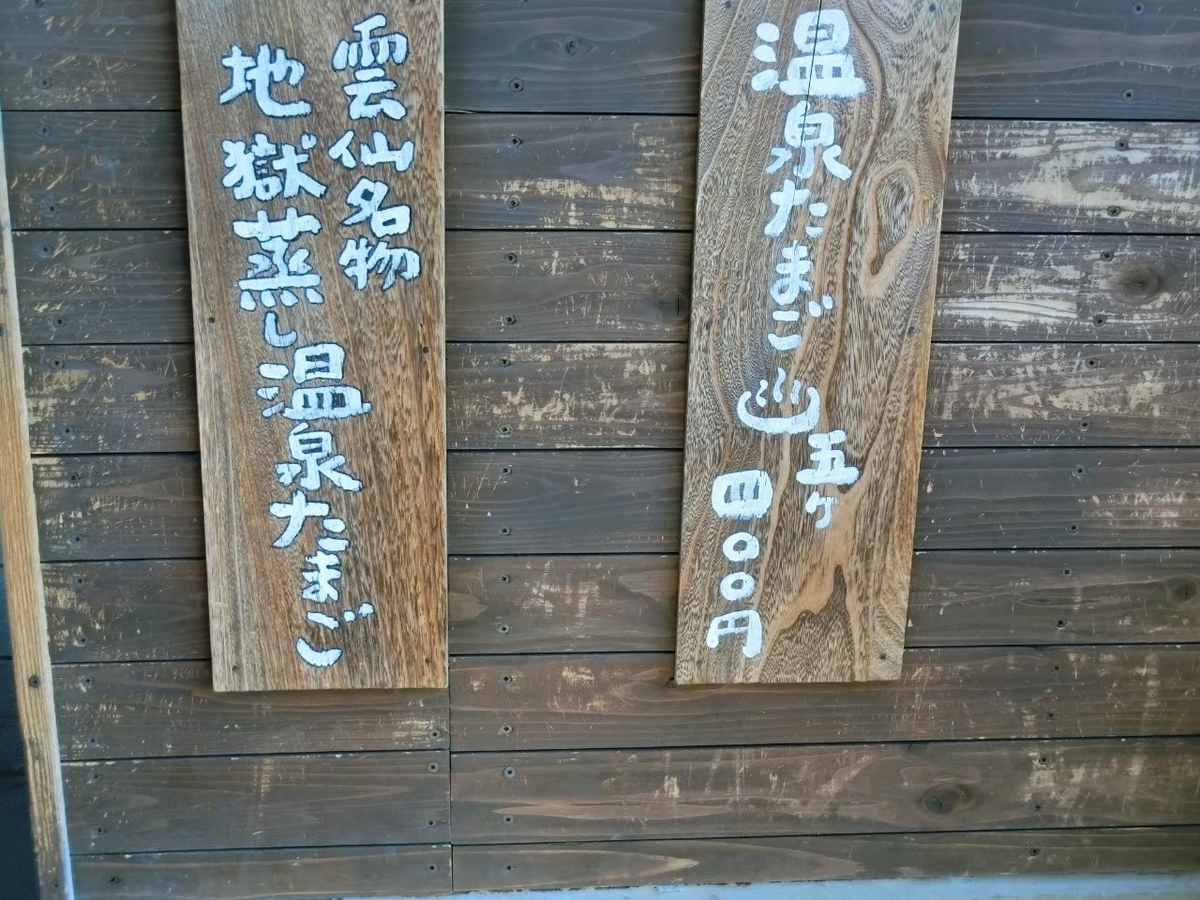 温泉たまご♨
五ヶ
四〇〇円
雲仙名物
地獄蒸し温泉たまご